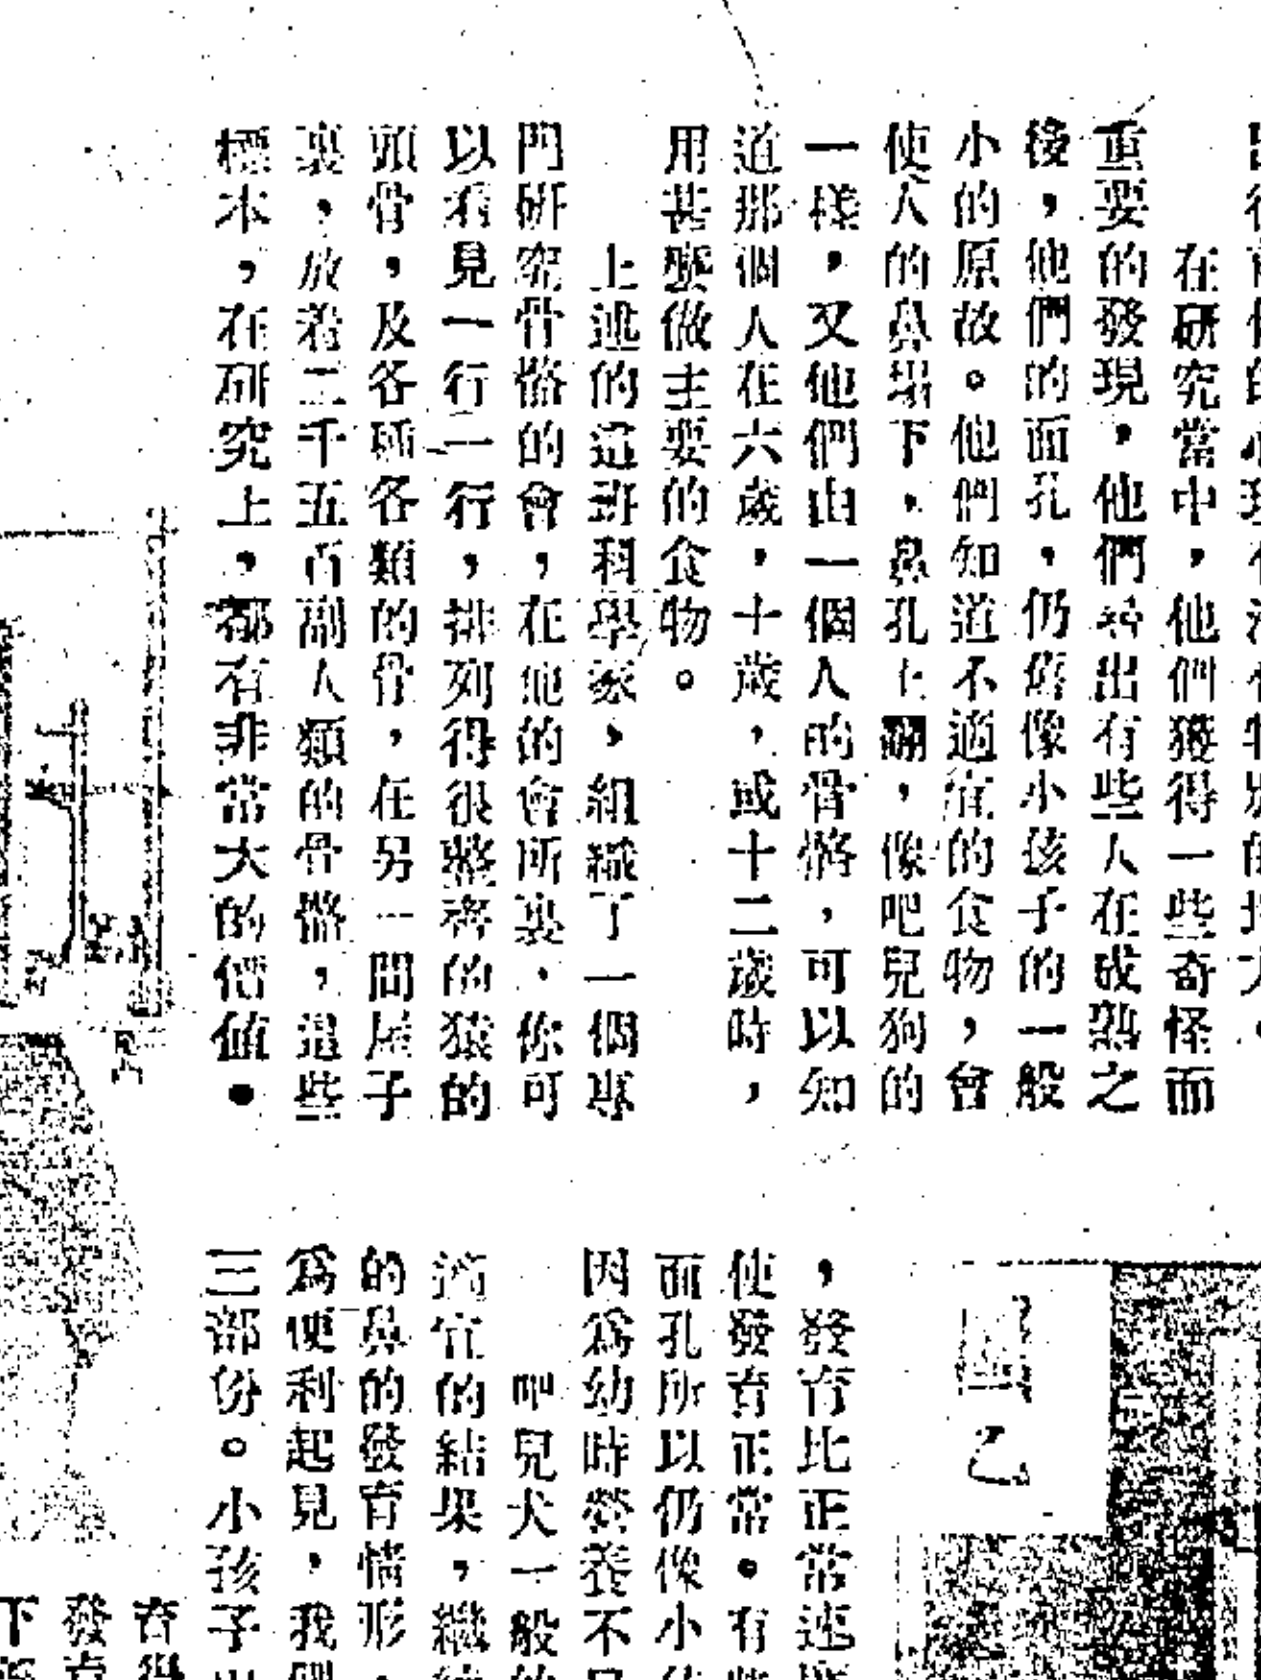 在研究當中，他們獲得一些奇怪而
重要的發現，他們尋出有些人在成熟之
後，他們的面孔，仍舊像小孩子的一般
小的原故。他們知道不適宜的食物，會
使人的鼻塌下，鼻孔上翻，像吧兒狗的
一樣，又他們由一個人的骨骼，可以知
道那個人在六歲，十歲，或十二歲時，
用甚麼做主要的食物。
上述的這班科學家，組織了一個專
門研究骨骼的會，在他的會所裏，你可
以看見一行一行，排列得很整齊的猿的
頭骨，及各種各類的骨，在另一間屋子
裏，放着二千五百副人類的骨骼，這些
標本，在研究上，都有非常大的價值。
圖乙
，發育比正常速
使發育正常。有些
面孔所以仍像小孩
因為幼時營養不足
吧兒犬一般的
適宜的結果，繼續
的鼻的發育情形，
為便利起見，我們
三部份。小孩子